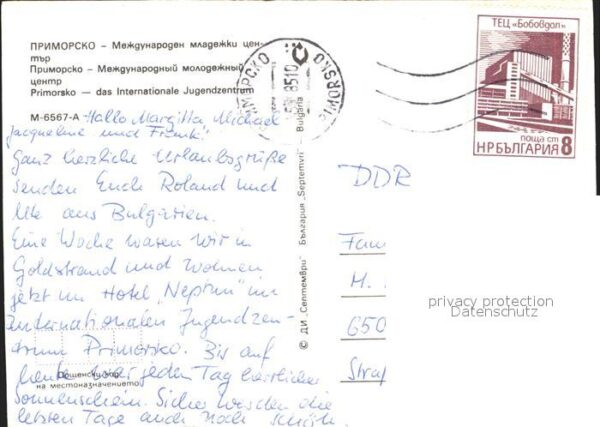 ПРИМОРСКО – Международен младежки цен-
тър
Приморско – Международный молодежный
центр
Primorsko – das Internationale Jugendzentrum
М-6567-А
Hallo Margitta, Michael
Jacqueline und Frank!
Ganz herzliche Urlaubsgrüße
senden Euch Roland und
Ute aus Bulgarien.
Eine Woche waren wir in
Goldstrand und wohnen
jetzt im Hotel „Neptun" im
Internationalen Jugendzen-
trum Primorsko. Bis auf
heute war jeden Tag herrlicher
Sonnenschein. Sicher werden die
letzten Tage auch noch schön.
Пощенски код
на местоназначението
© ДИ „Септември" България „Septemvri" Bulgaria
PRIMORSKO
ТЕЦ „Бобовдол"
поща ст
НРБЪЛГАРИЯ 8
DDR
Fam
M.
650
Straß
privacy protection
Datenschutz